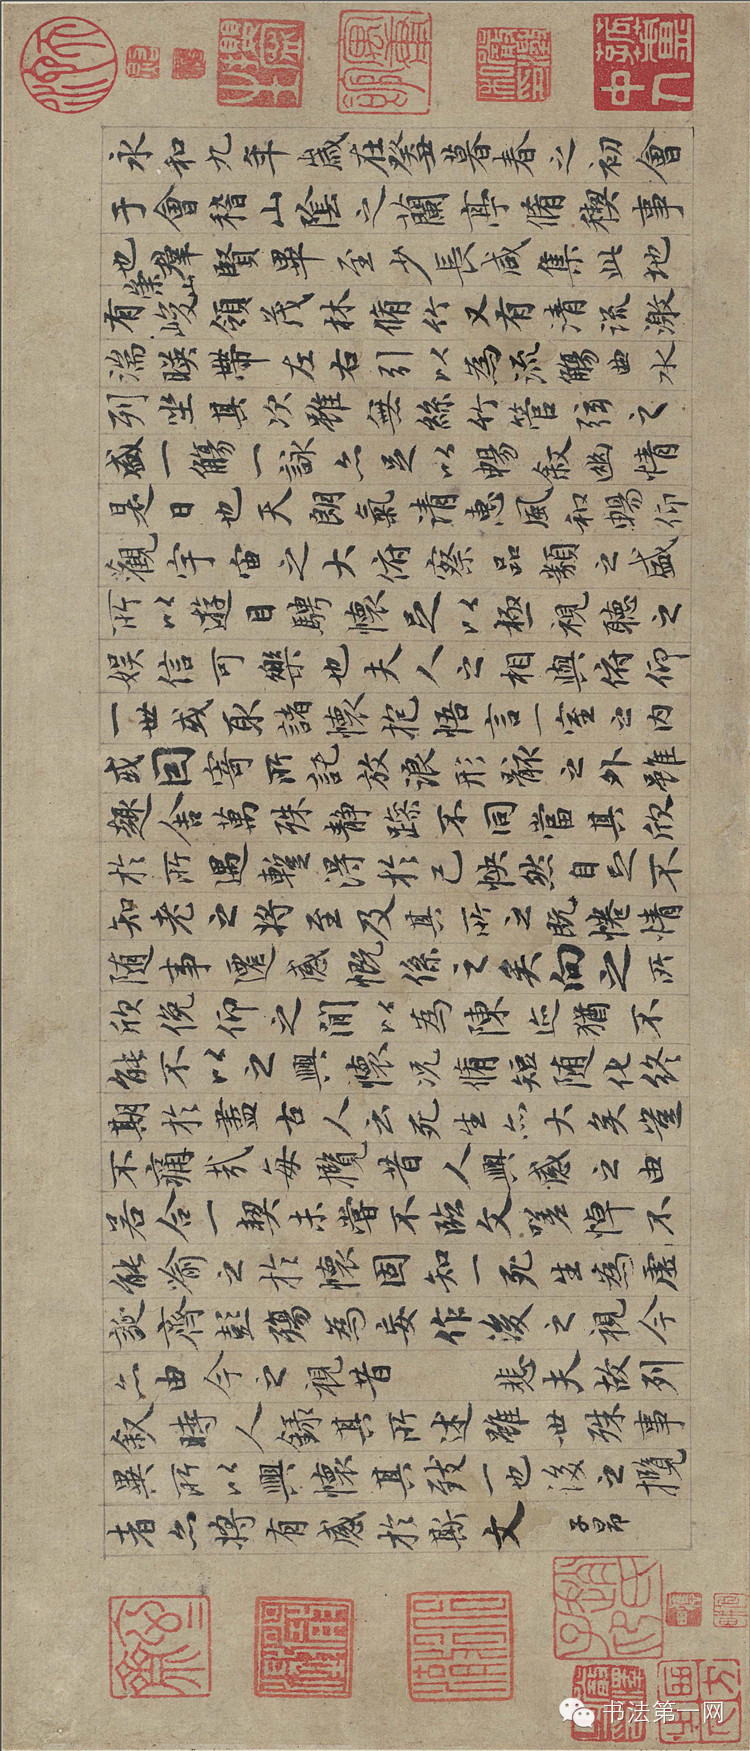 永和九年歲在癸丑暮春之初會
于會稽山陰之蘭亭脩稧事
也羣賢畢至少長咸集此地
有崇山峻領茂林脩竹又有清流激
湍暎帶左右引以為流觴曲水
列坐其次雖無絲竹管弦之
盛一觴一詠亦足以暢敘幽情
是日也天朗氣清惠風和暢仰
觀宇宙之大俯察品類之盛
所以遊目騁懷足以極視聽之
娛信可樂也夫人之相與俯仰
一世或取諸懷抱悟言一室之內
或因寄所託放浪形骸之外雖
趣舍萬殊靜躁不同當其欣
於所遇蹔得於己怏然自足不
知老之將至及其所之既惓情
随事遷感慨係之矣向之所
欣俛仰之閒以為陳迹猶不
能不以之興懷況脩短随化終
期於盡古人云死生亦大矣豈
不痛哉每攬昔人興感之由
若合一契未嘗不臨文嗟悼不
能喻之於懷固知一死生為虛
誕齊彭殤為妄作後之視今
亦由今之視昔 悲夫故列
敘時人錄其所述雖世殊事
異所以興懷其致一也後之攬
者亦將有感於斯文 子昂
书法第一网